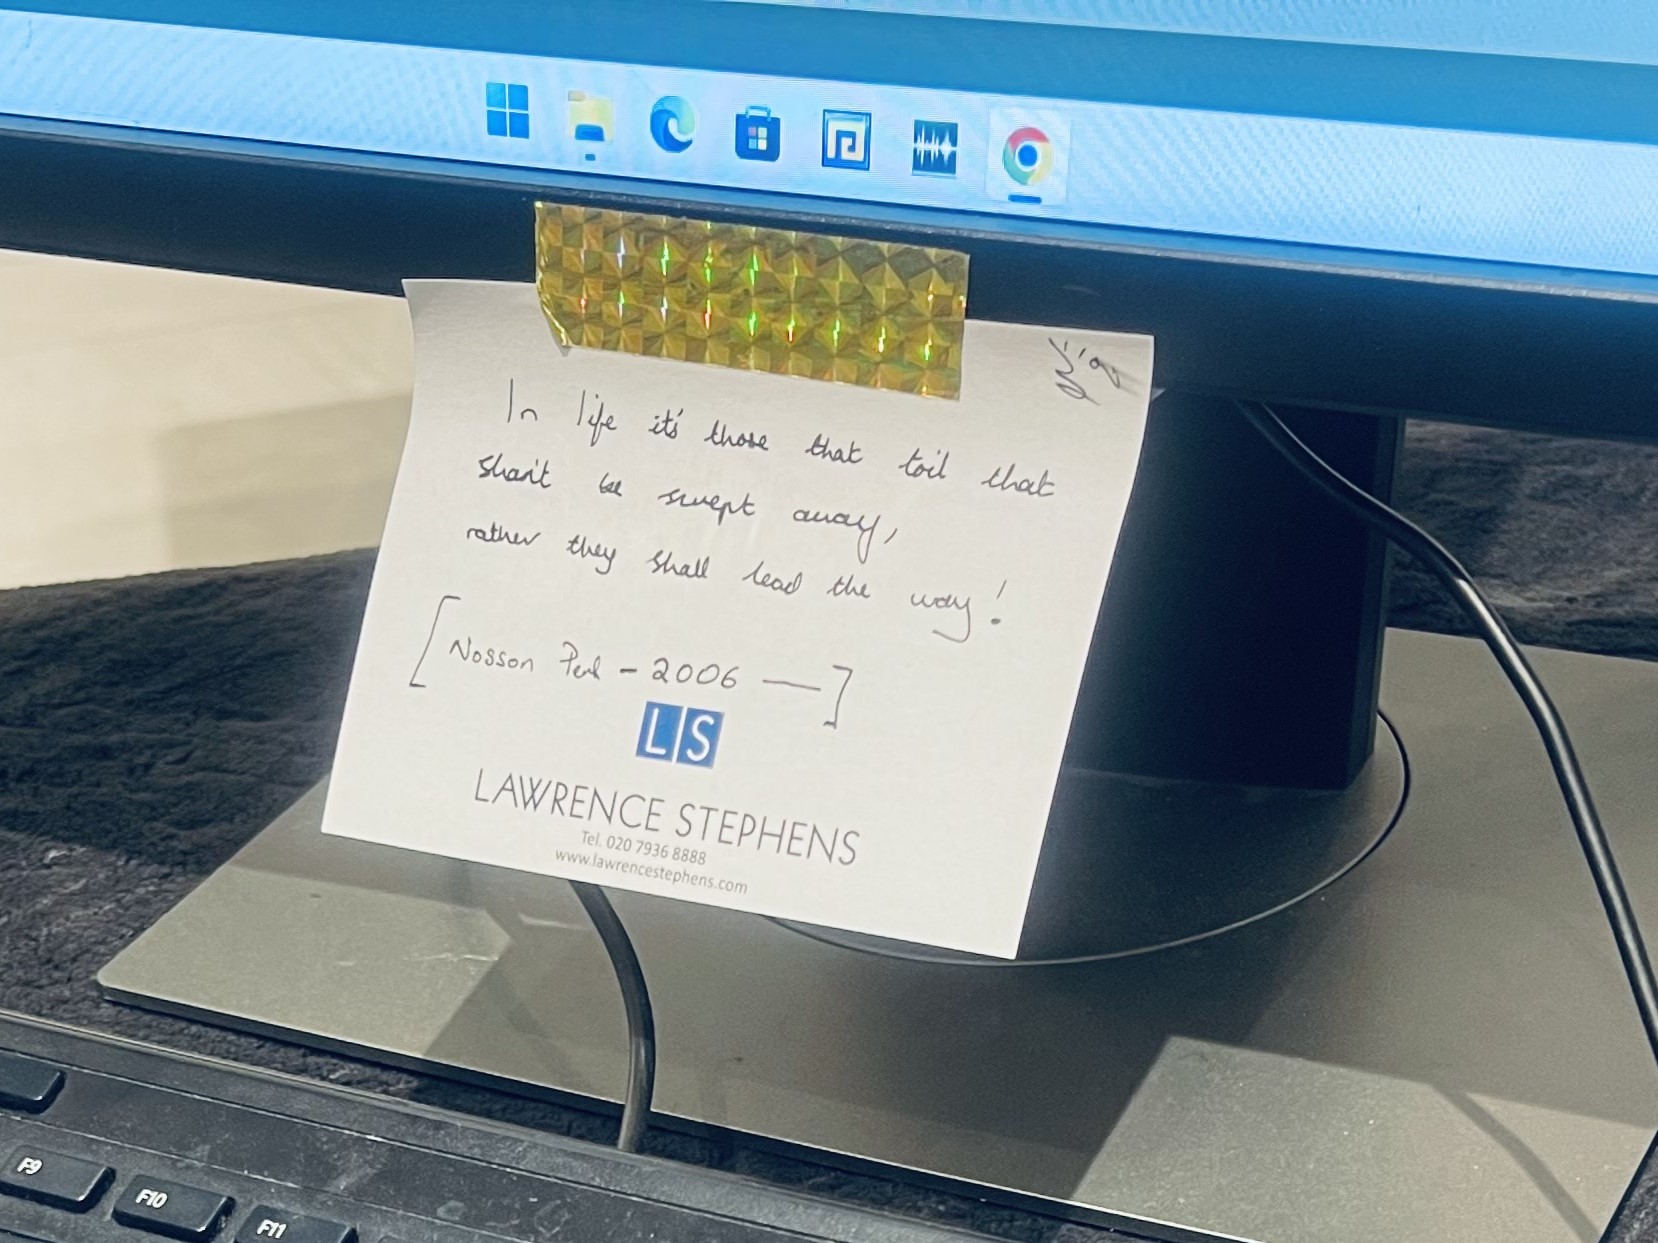 In life it's those that toil that
shan't be swept away,
rather they shall lead the way!
[Nosson Perl - 2006 —]
LS
LAWRENCE STEPHENS
Tel. 020 7936 8888
www.lawrencestephens.com
F9
F10
F11